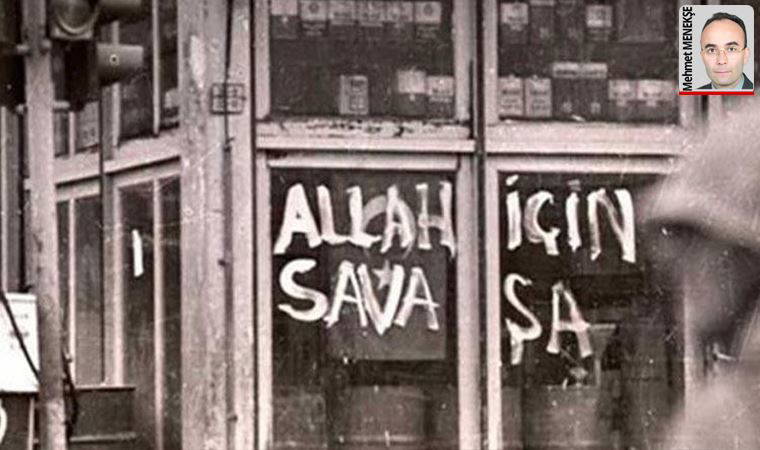 Mehmet MENEKŞE
ALLAH İÇİN
SAVA ŞA